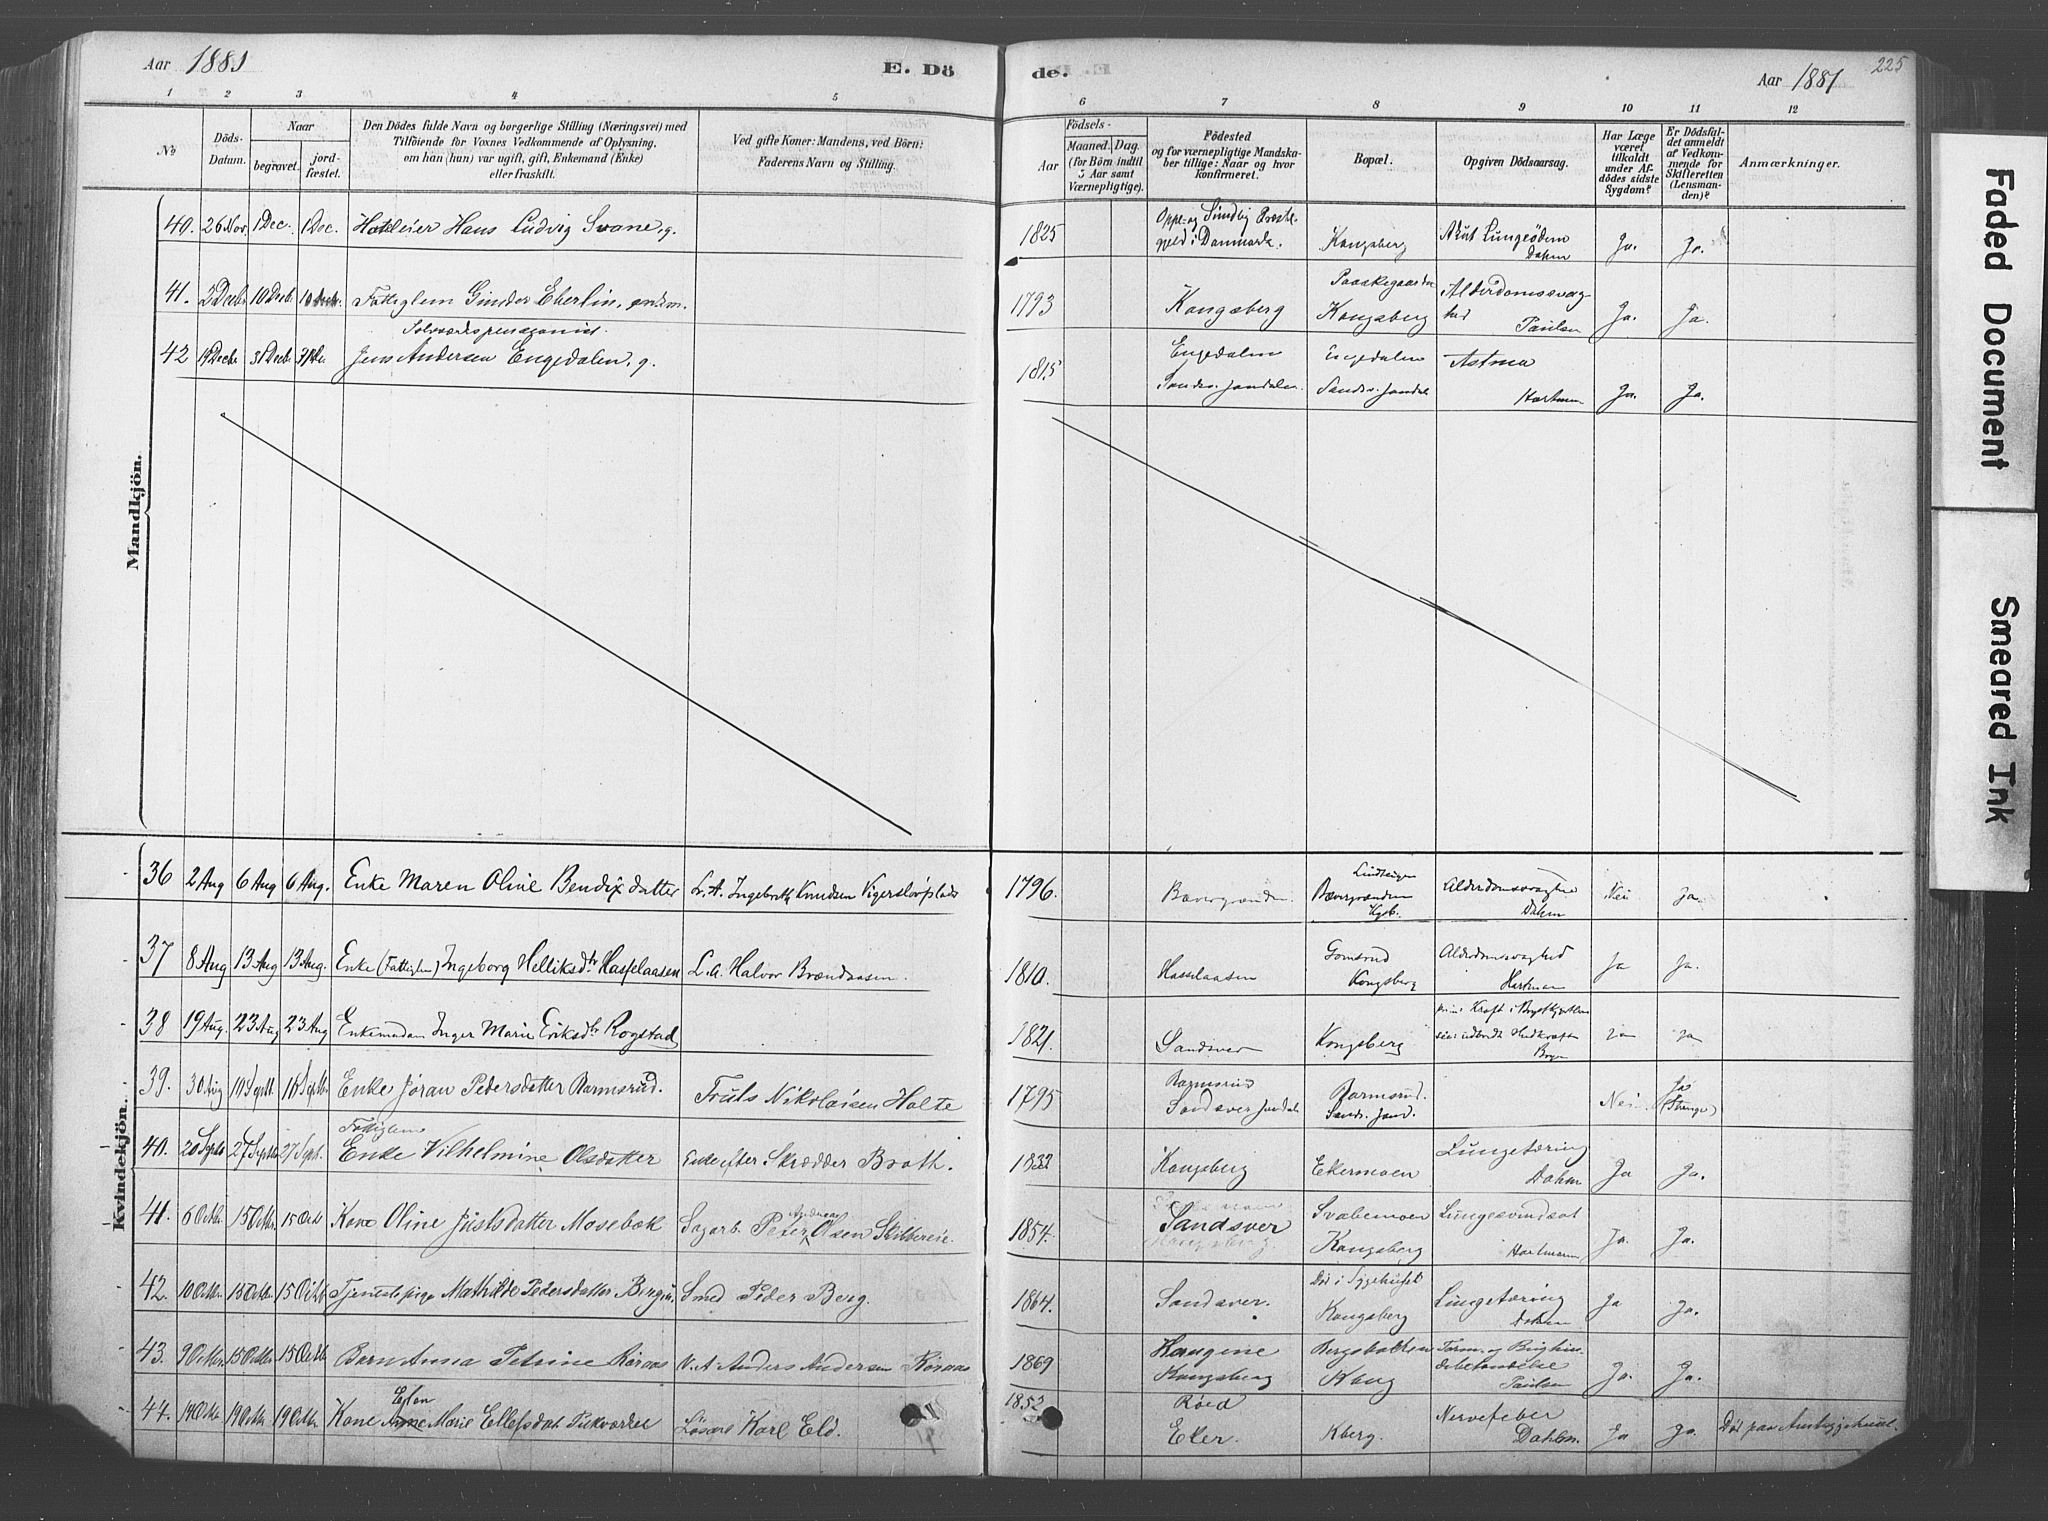 Aar 1881
E. Dö
de.
Aar 1881
225
1 2 3 4 5 6 7 8 9 10 11 12
No
Döds-Datum.
Naar
begravet.
jord-fæstet.
Den Dödes fulde Navn og borgerlige Stilling (Næringsvei) med
Tilföiende for Voxnes Vedkommende af Oplysning,
om han (hun) var ugift, gift, Enkemand (Enke)
eller fraskilt.
Ved gifte Koner: Mandens, ved Börn:
Faderens Navn og Stilling.
Födsels-
Aar
Maaned. Dag.
(for Börn indtil
5 Aar samt
Værnepligtige).
Födested
og for værnepligtige Mandska-
ber tillige: Naar og hvor
konfirmeret.
Bopæl.
Opgiven Dödsaarsag.
Har Læge
været
tilkaldt
under Af-
dödes sidste
Sygdom?
Er Dödsfal-
det anmeldt
af Vedkom-
mende for
Skifteretten
(Lensman-
den)?
Anmærkninger.
Mandkjön.
40. 26 Nov. 1 Dec. 1 Dec. Hans Ludvig Svane, g. 1825 Sundby Præste-
gjeld i Danmark. Kongsberg Akut Lungeödem Dahm Ja. Ja.
41. 2 Decbr 10 Decbr Fattiglem Eberlin, 1793 Kongsberg Kongsberg Alderdomssvag-
hed Paulsen Ja. Ja.
42 Jens Andersen Engedalen, g. 1815 Engedalen
Sandsv. Jondalen. Engedalen
Sandsv. Jondal Astma
Hartman Ja. Ja.
Kvindekjön.
36 2 Aug 6 Aug 6 Aug. Enke Maren Oline Bendixdatter L. A. Ingebreth Knudsen 1796. Bævergrænden Bævergrænden
Kgsb. Alderdomssvaghed
Dahm Nei ja
37 8 Aug 13 Aug 13 Aug. Enke (Fattiglem) Ingeborg Helliksdtr Hasselaasen L. A. Halvor Brændaasen. 1810. Hasselaasen Gomsrud
Kongsberg Alderdomssvaghed
Hartman Ja Ja.
38 19 Aug. 23 Aug 23 Aug Enkemadam Inger Marie Eriksdtr Rogstad 1821. Sandsver Kongsberg Kræft i Brystkjertlen ja ja
39. 30 Aug Enke Jöran Pedersdatter Ramsrud. Truls Nikolaisen Holte 1795 Ramsrud
Sandsver Jondal Ramsrud.
Sands. Jond. Nei Ja
40. 20 Septb 27 Septb 27 Sept. Fattiglem
Enke Vilhelmine Olsdatter Enke efter Skrædder Broth. 1832 Kongsberg Ekermoen Lungetæring
Dahm Ja Ja.
41. 6 Octbr 15 Octbr 15 Octb Kone Oline Justsdatter Mosebak Peter Andreas Olsen Skitbereie. 1854. Sandsver Svabemoen
Kongsberg
Hartmann Ja. Ja.
42. 10 Octbr. 15 Octbr. 15 Octb Tjenestepige Mathilde Pedersdatter Smed Peder Berg. 1864. Sandsver. Död i Sygehuset
Kongsberg Lungetæring
Dahm Ja Ja.
43. 9 Octbr. 15 Octbr. 15 Octb Barn Anna Petrine Röraas Anders Andersen Röraas 1869 Haugene
Kongsberg
Kong
Paulsen Ja. Ja.
44. 14 Octb 19 Octbr 19 Octbr. Kone Marie Ellefsdat. Karl Eld. 1853 Röed
Eker. Kberg. Nervefeber
Dahm. Ja Ja.
Faded Document
Smeared Ink